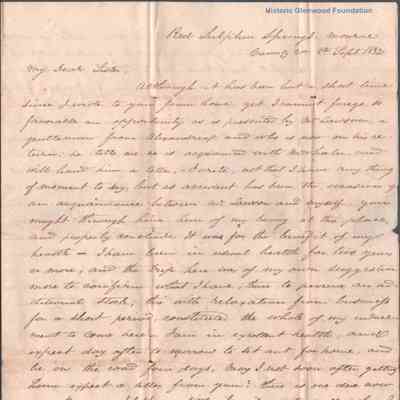 Historic Glenwood Foundation
Red Sulphur Springs, Monroe
County Va 8th Sept 1832
My Dear Sister,
Although it has been but a short time
since I wrote to you from home, yet I cannot forego so
favorable an opportunity as is presented by Mr Lawson, a
gentleman from Alexandria and who is now on his re
turn; he tells me he is acquainted with Mr and
will hand him a letter. I write, not that I have any thing
of moment to say, but as accident has been the occasion of
an acquaintance between Mr Lawson and myself you
might through him hear of my being at this place,
and properly conclude it was for the benefit of my
health – I have been in usual health for two years
or more, and the trip here was of my own suggestion
more to confirm what I have, than to procure an ad
ditional stock; this with relaxation from business
for a short period, constituted the whole of my induce
ment to come here. I am in excellent health, and
expect day after to morrow to set out for home, and
be on the road four days. May I not soon after getting
home expect a letter from you? there is no one over